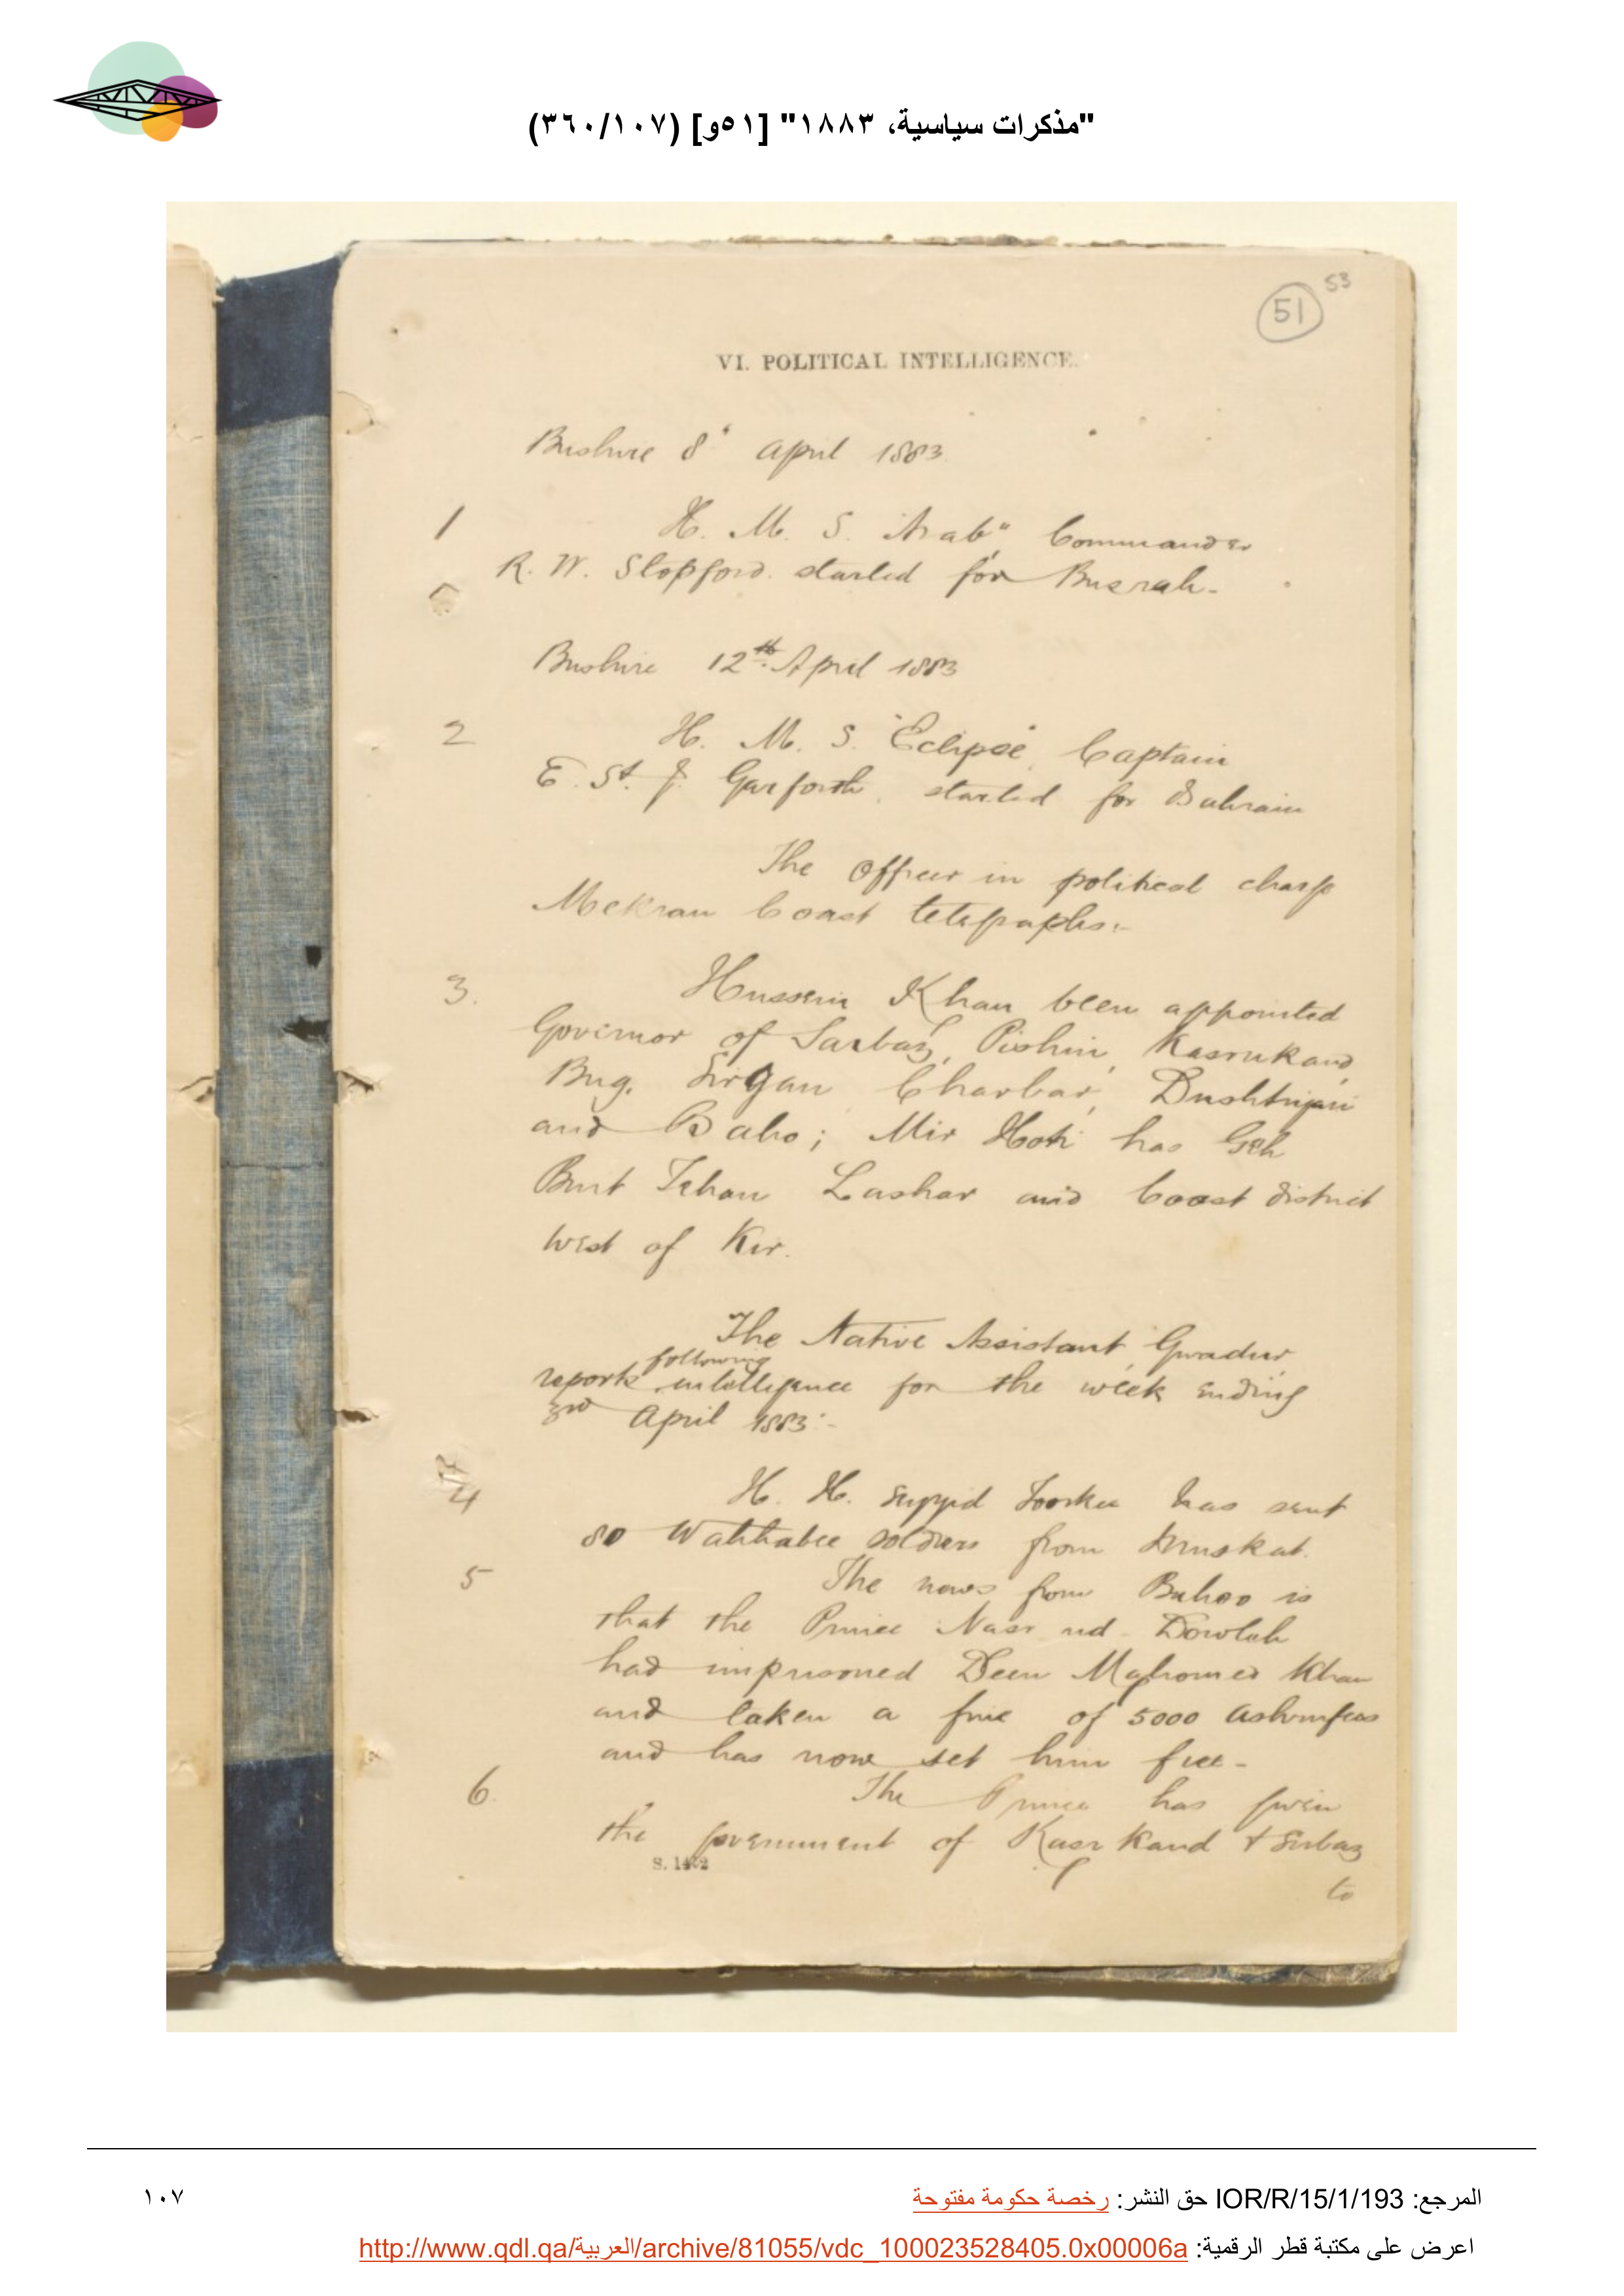 "مذكرات سياسية، ١٨٨٣" [٥١و] (٣٦٠/١٠٧)
53
51
VI. POLITICAL INTELLIGENCE.
Bushire 8th April 1883
1 H. M. S. "Arab" Commander
R. W. Stopford. started for Busrah-
Bushire 12th April 1883
2 H. M. S. "Eclipse", Captain
E. St. J. Garforth, started for Bahrain
The Officer in political charge
Mekran Coast telegraphs:-
3. Hussein Khan been appointed
Governor of Sarbaz, Pishin, Kasrukand,
Bug, Sirgan, Charbar, Dushtiyari
and Baho; Mir Hoti has Geh
Bint Fehan Lashar and Coast district
West of Kir.
The Native Assistant, Gwadur,
following
reports intelligence for the week ending
3rd April 1883:-
4 H. H. Seyyid Toorkee has sent
80 Wahhabee soldiers from Muskat.
5 The news from Bahoo is
that the Prince Nasr ud-Dowleh
had imprisoned Deen Mahomed Khan
and taken a fine of 5000 Ashrufees
and has now set him free-
6. The Prince has given
the government of Kasrkand & Surbaz
S. 1462
to
المرجع: IOR/R/15/1/193 حق النشر: رخصة حكومة مفتوحة
١٠٧
اعرض على مكتبة قطر الرقمية: http://www.qdl.qa/العربية/archive/81055/vdc_100023528405.0x00006a